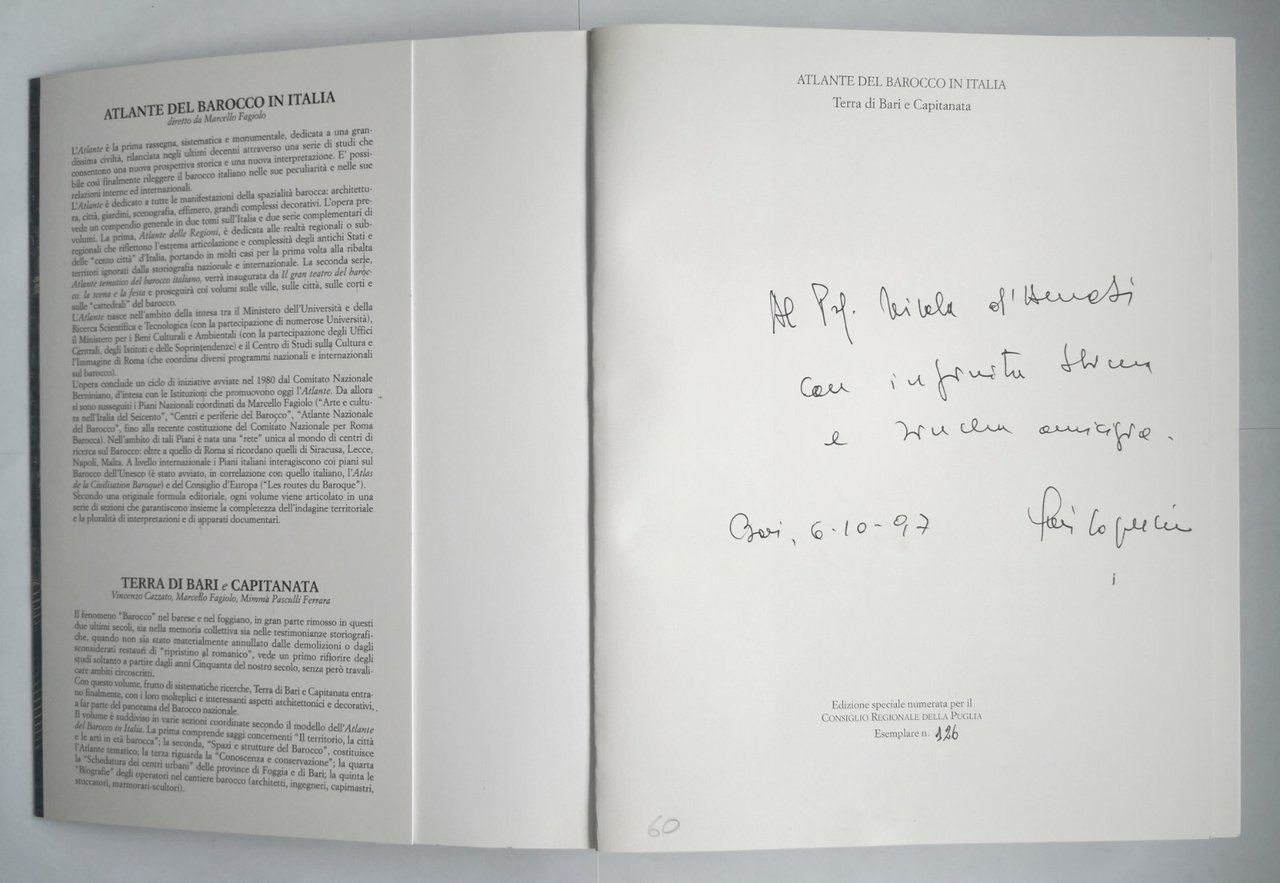 ATLANTE DEL BAROCCO IN ITALIA
diretto da Marcello Fagiolo
L'Atlante è la prima rassegna, sistematica e monumentale, dedicata a una gran-
dissima civiltà, rilanciata negli ultimi decenni attraverso una serie di studi che
consentono una nuova prospettiva storica e una nuova interpretazione. E' possi-
bile così finalmente rileggere il barocco italiano nelle sue peculiarità e nelle sue
relazioni interne ed internazionali.
L'Atlante è dedicato a tutte le manifestazioni della spazialità barocca: architettu-
ra, città, giardini, scenografia, effimero, grandi complessi decorativi. L'opera pre-
vede un compendio generale in due tomi sull'Italia e due serie complementari di
volumi. La prima, Atlante delle Regioni, è dedicata alle realtà regionali o sub-
regionali che riflettono l'estrema articolazione e complessità degli antichi Stati e
delle "cento città" d'Italia, portando in molti casi per la prima volta alla ribalta
territori ignorati dalla storiografia nazionale e internazionale. La seconda serie,
Atlante tematico del barocco italiano, verrà inaugurata da Il gran teatro del baroc-
co. la scena e la festa e proseguirà coi volumi sulle ville, sulle città, sulle corti e
sulle "cattedrali" del barocco.
L'Atlante nasce nell'ambito della intesa tra il Ministero dell'Università e della
Ricerca Scientifica e Tecnologica (con la partecipazione di numerose Università),
il Ministero per i Beni Culturali e Ambientali (con la partecipazione degli Uffici
Centrali, degli Istituti e delle Soprintendenze) e il Centro di Studi sulla Cultura e
l'Immagine di Roma (che coordina diversi programmi nazionali e internazionali
sul barocco).
L'opera conclude un ciclo di iniziative avviate nel 1980 dal Comitato Nazionale
Berniniano, d'intesa con le Istituzioni che promuovono oggi l'Atlante. Da allora
si sono susseguiti i Piani Nazionali coordinati da Marcello Fagiolo ("Arte e cultu-
ra nell'Italia del Seicento", "Centri e periferie del Barocco", "Atlante Nazionale
del Barocco", fino alla recente costituzione del Comitato Nazionale per Roma
Barocca). Nell'ambito di tali Piani è nata una "rete" unica al mondo di centri di
ricerca sul Barocco: oltre a quello di Roma si ricordano quelli di Siracusa, Lecce,
Napoli, Malta. A livello internazionale i Piani italiani interagiscono coi piani sul
Barocco dell'Unesco (è stato avviato, in correlazione con quello italiano, l'Atlas
de la Civilisation Baroque) e del Consiglio d'Europa ("Les routes du Baroque").
Secondo una originale formula editoriale, ogni volume viene articolato in una
serie di sezioni che garantiscono insieme la completezza dell'indagine territoriale
e la pluralità di interpretazioni e di apparati documentari.
TERRA DI BARI e CAPITANATA
Vincenzo Cazzato, Marcello Fagiolo, Mimma Pasculli Ferrara
Il fenomeno "Barocco" nel barese e nel foggiano, in gran parte rimosso in questi
due ultimi secoli, sia nella memoria collettiva sia nelle testimonianze storiografi-
che, quando non sia stato materialmente annullato dalle demolizioni o dagli
sconsiderati restauri di "ripristino al romanico", vede un primo rifiorire degli
studi soltanto a partire dagli anni Cinquanta del nostro secolo, senza però travali-
care ambiti circoscritti.
Con questo volume, frutto di sistematiche ricerche, Terra di Bari e Capitanata entra-
no finalmente, con i loro molteplici e interessanti aspetti architettonici e decorativi,
a far parte del panorama del Barocco nazionale.
Il volume è suddiviso in varie sezioni coordinate secondo il modello dell'Atlante
del Barocco in Italia. La prima comprende saggi concernenti "Il territorio, la città
e le arti in età barocca"; la seconda, "Spazi e strutture del Barocco", costituisce
l'Atlante tematico; la terza riguarda la "Conoscenza e conservazione"; la quarta
la "Schedatura dei centri urbani" delle province di Foggia e di Bari; la quinta le
"Biografie" degli operatori nel cantiere barocco (architetti, ingegneri, capimastri,
stuccatori, marmorari-scultori).
ATLANTE DEL BAROCCO IN ITALIA
Terra di Bari e Capitanata
Al Prof. Nicola
con infinita stima
e amicizia.
Bari, 6-10-97
Edizione speciale numerata per il
CONSIGLIO REGIONALE DELLA PUGLIA
Esemplare n. 126
60